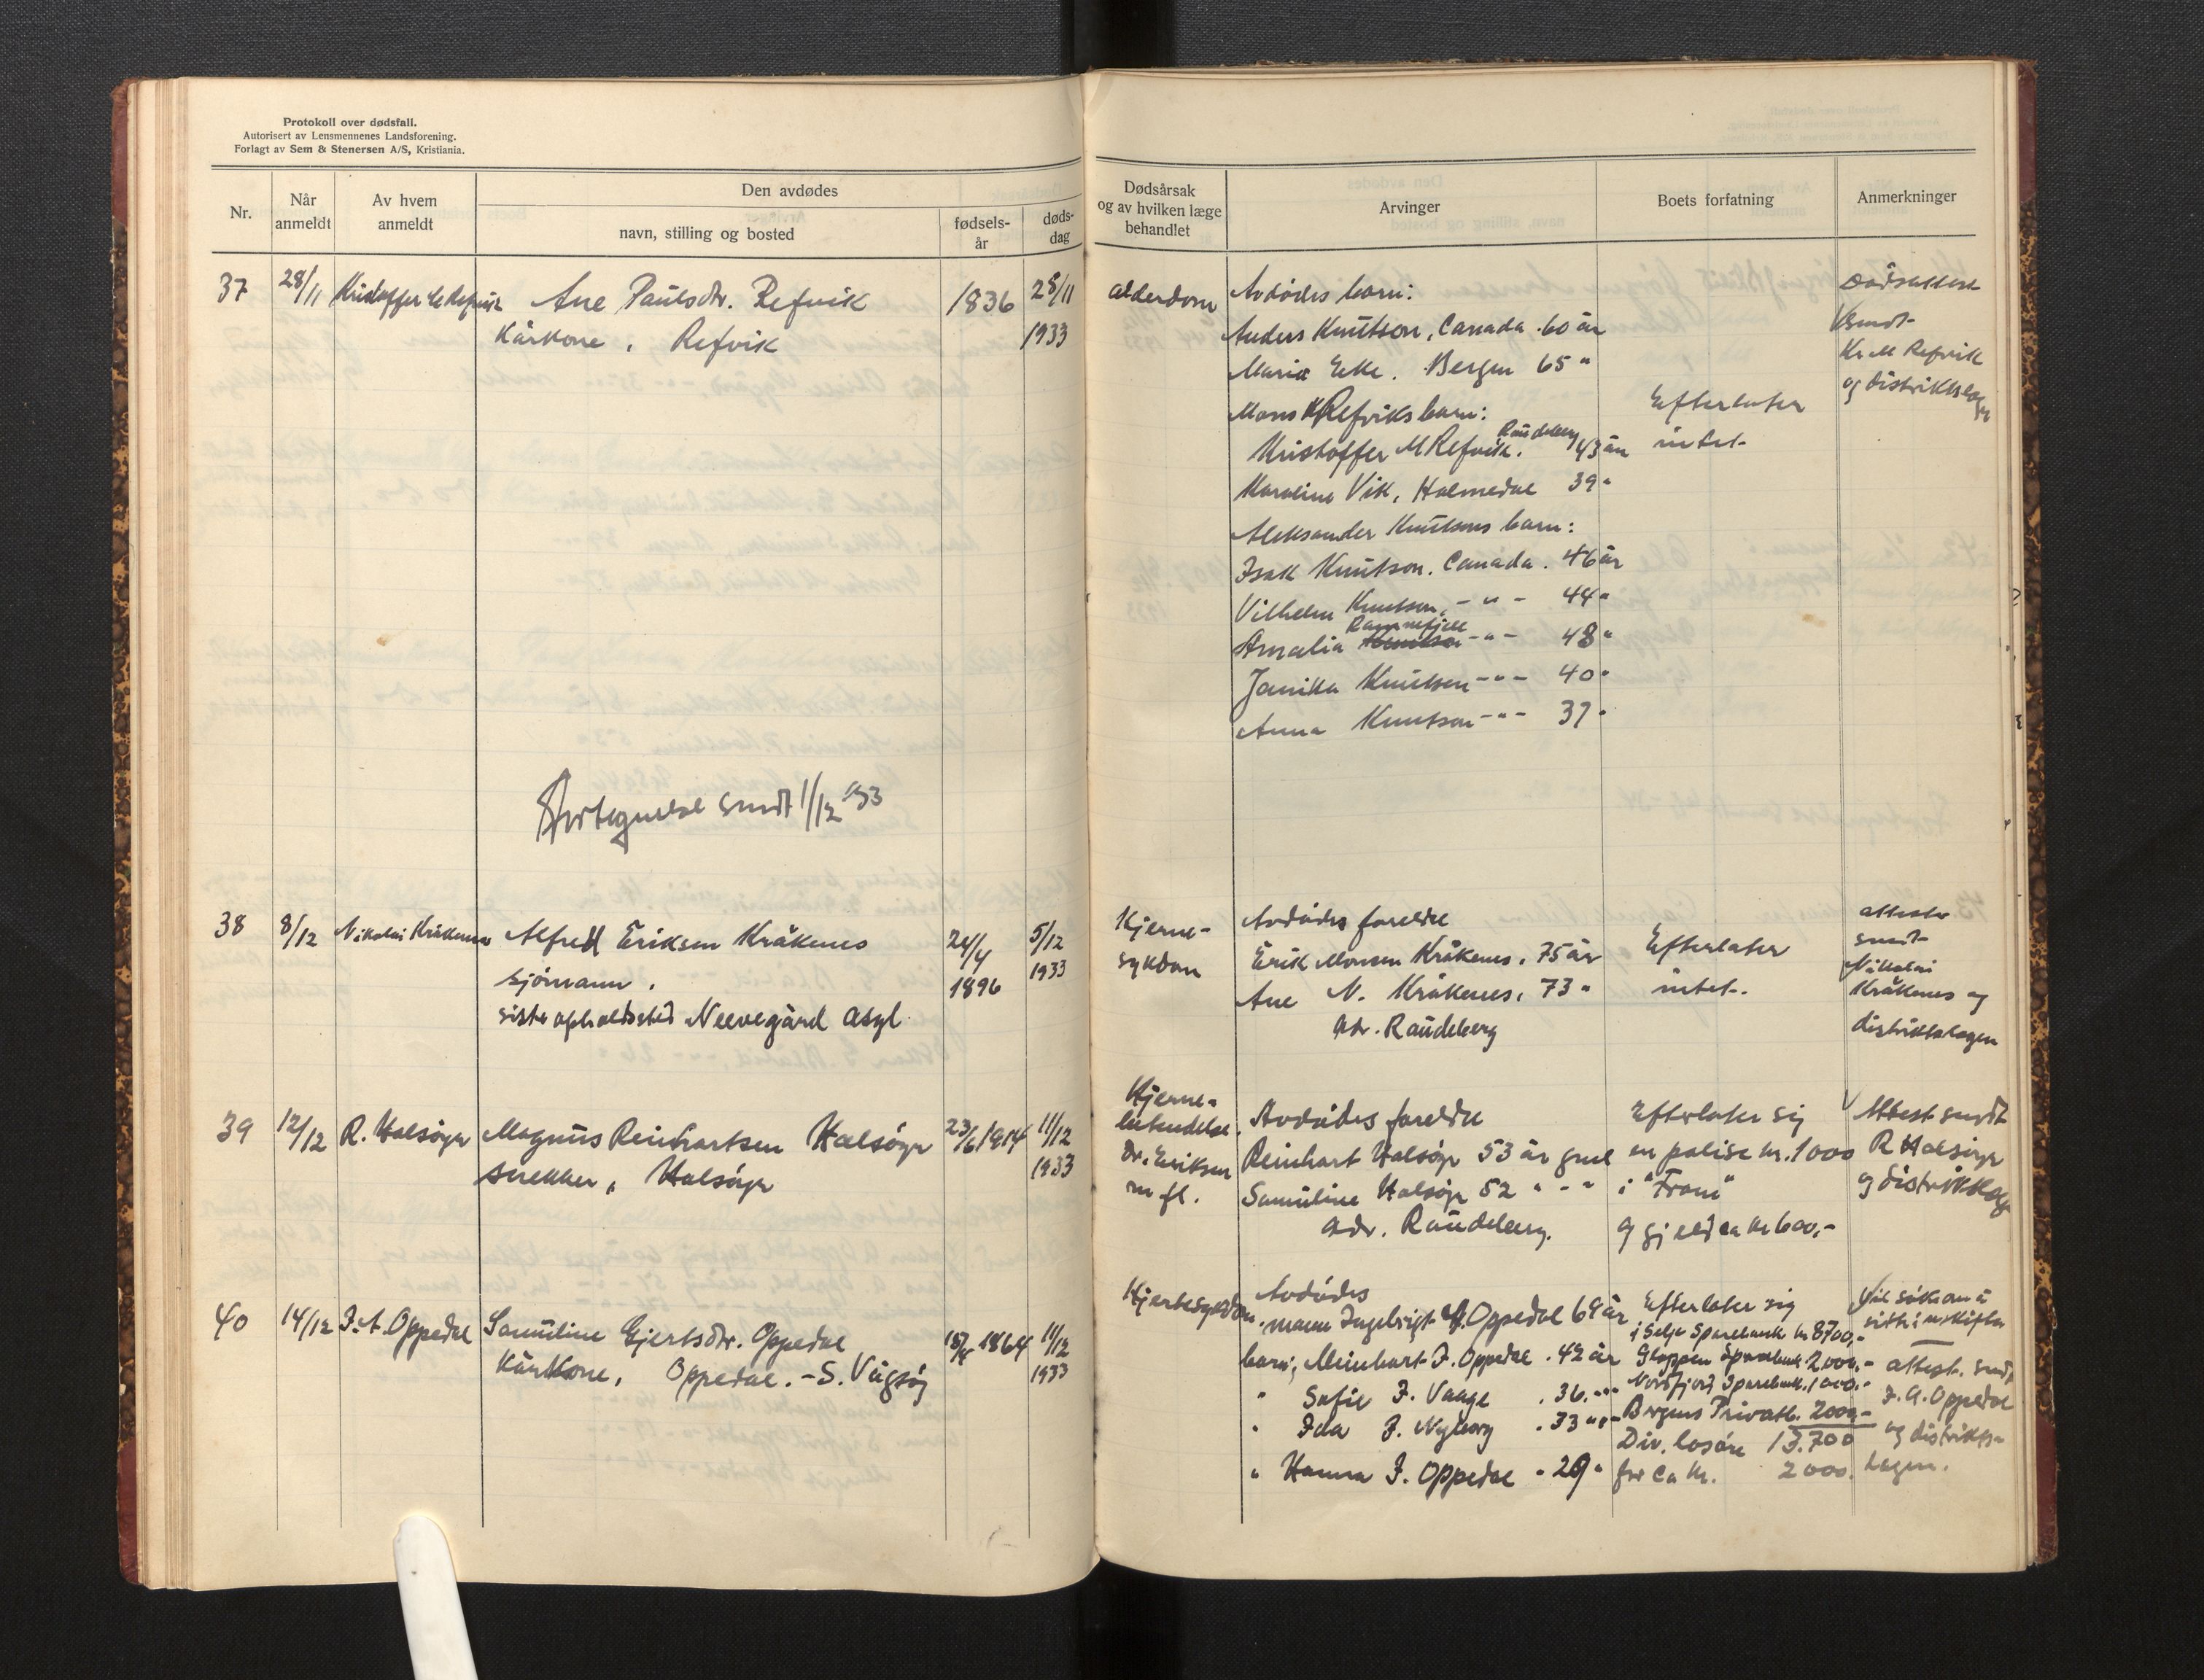 Protokoll over dødsfall.
Autorisert av Lensmennenes Landsforening.
Forlagt av Sem & Stenersen A/S, Kristiania.
Nr.
Når anmeldt
Av hvem anmeldt
Den avdødes
navn, stilling og bosted
fødsels-år
døds-dag
Dødsårsak og av hvilken læge behandlet
Arvinger
Boets forfatning
Anmerkninger
37 28/11 Kristoffer Ane Paulsdtr. Refvik 1836 28/11
Kårkone, Refvik 1933
alderdom
Avdødes barn:
Anders Knutson, Canada. 60 år
Maria Eke. Bergen 65 "
Mons K Refviks barn:
Kristoffer M Refvik. Raudeberg 43 år
Karoline Vik, Holmedal 39 "
Aleksander Knutsons barn:
Isak Knutson. Canada. 46 år
Vilhelm Knutson, - " - 44 "
Amalia Knutson Ramnefjell - " - 48 "
Janika Knutson - " - 40 "
Anna Knutson - " - 37 "
Efterlater
intet
Dødsattest
sendt
Kr M Refvik
og distriktslage
Fortegnelse sendt 1/12 '33
38 8/12 Nikolai Kråkenes Alfred Eriksen Kråkenes 24/4 5/12
sjömann, 1896 1933
siste opholdssted Neevegård Asyl
Hjerne-
sykdom
Avdødes foreldre
Erik Monsen Kråkenes, 75 år
Ane N. Kråkenes, 73 "
adr. Raudeberg
Efterlater
intet.
attester
sendt
Nikolai
Kråkenes og
distriktslagen
39 12/12 R. Halsöyr Magnus Reinhartsen Halsöyr 23/6 1914 11/12
snekker, Halsöyr 1933
Hjerne-
betendelse.
Dr. Eriksen
m fl.
Avdødes foreldre
Reinhart Halsöyr 53 år gml
Samuline Halsöyr 52 " - "
adr. Raudeberg.
Efterlater sig
en polise kr. 1000
i "Fram"
og gjeld ca kr 600,-
Attest sendt
R Halsöyr
og distriktslag
40 14/12 I. A. Oppedal Samuline Gjertsdtr. Oppedal 1864 11/12
Kårkone, Oppedal. - S. Vågsöy 1933
Hjertesykdom.
Avdødes
mann Ingebrigt A. Oppedal 69 år
barn; Meinhart I. Oppedal. 42 år
" Sofie I. Vaage. 36. " "
" Ida I. Nyborg. 33 " "
" Hanna I. Oppedal - 29 "
Efterlater sig
i Selje Sparebank kr 8700,-
Gloppen Sparebank 2000,-
Nordfjord Sparebank. 1000.-
Bergens Privatb. 2000,-
13.700
Div. losöre
for ca kr. 2000.
Vil søke om å
sitte i uskifta
attest. sendt
I. A. Oppedal
og distrikts-
lagen.